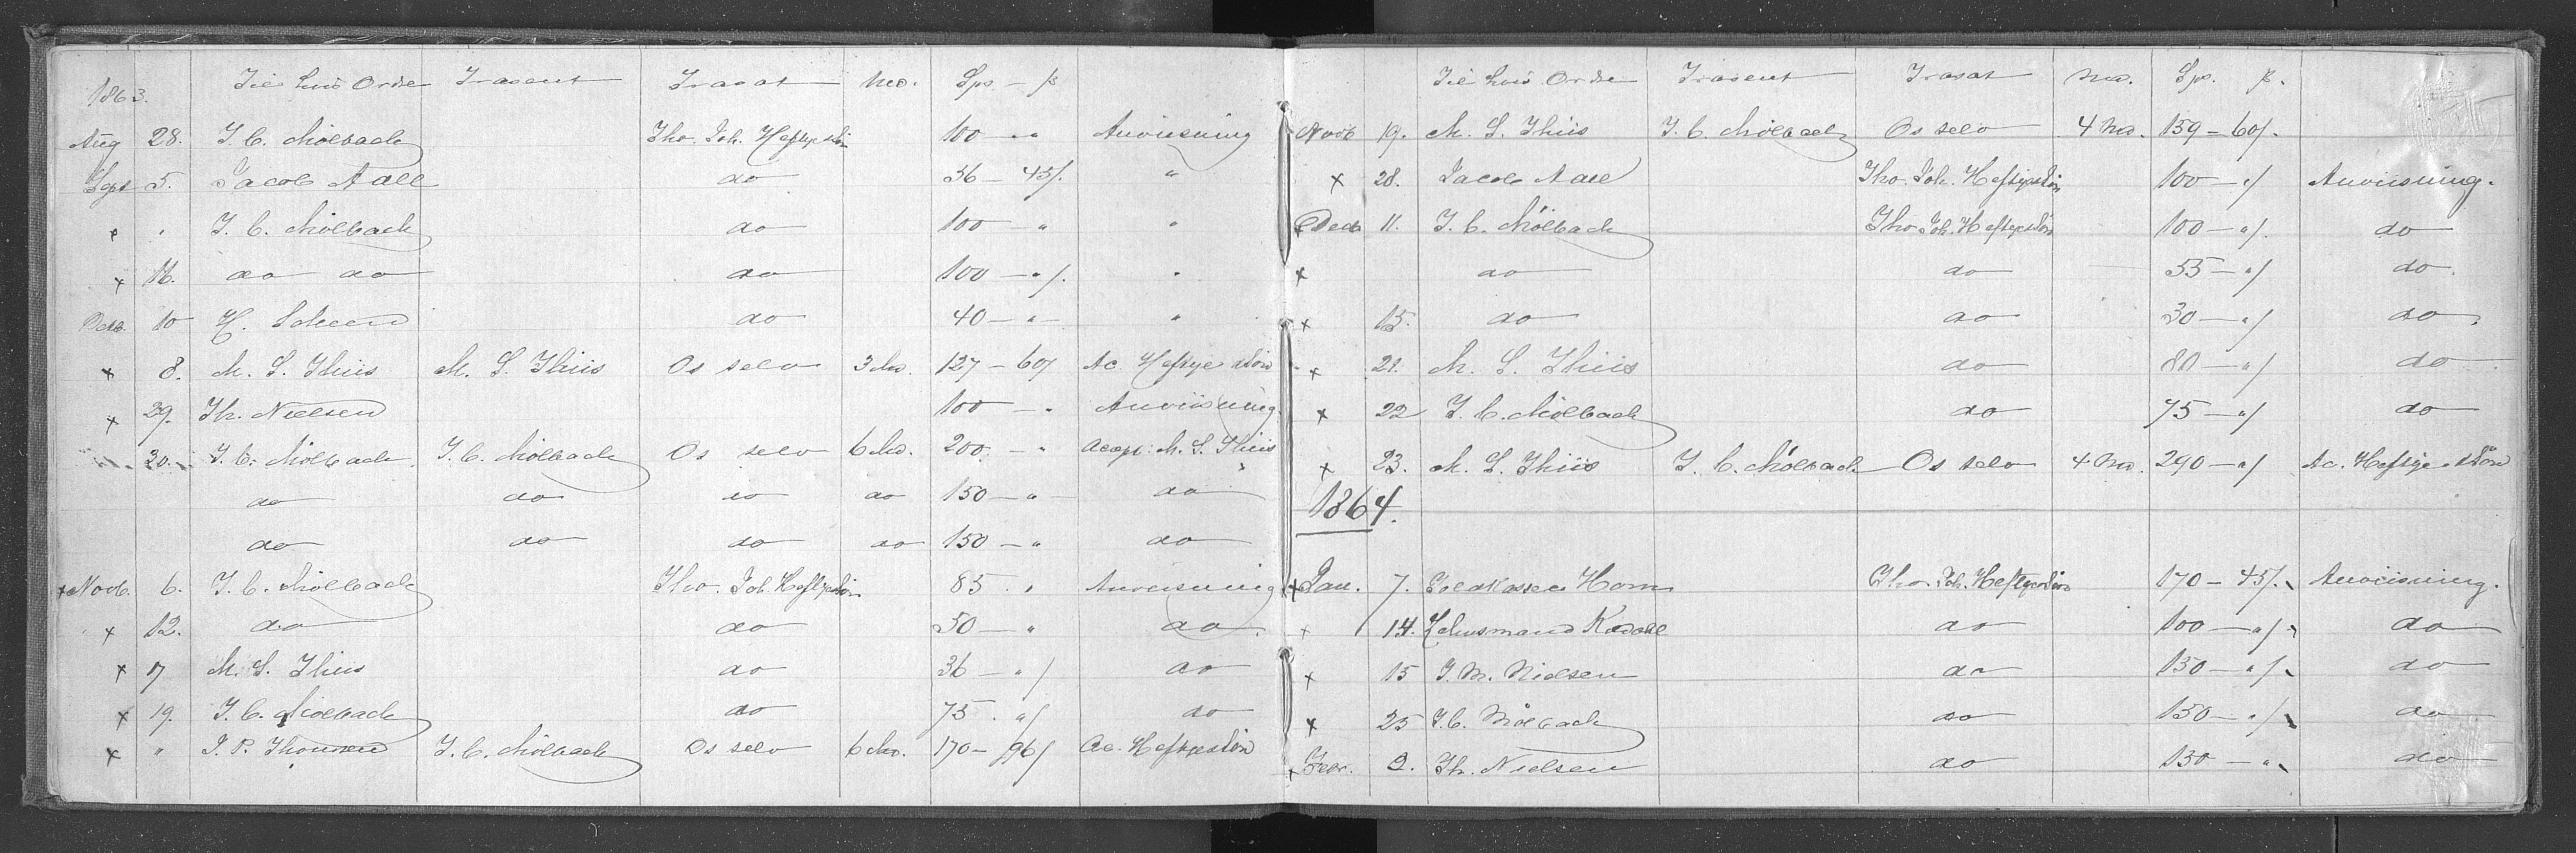 1863. Til hvis Ordre Trasent Trasat Md. Sps. – ß
Aug 28. J. C. Mølbach Tho. Joh. Heftye & Søn 100 – " Anviisning
Sept 5. Jacob Aall do 36 – 45ß. "
" " J. C. Mølbach do 100 – " "
x 16. do do do 100 – "ß. "
10 H. do 40 – " – "
x 8. M. S. Thiis M. S. Thiis Os selv 3 Md. 127 – 60ß Ac. Heftye & Søn
x 29. Th. Nielsen 100 – " Anviisning.
30. J. C. Mølbach J. C. Mølbach Os selv 6 Md. 200. – " Accept: M. S. Thiis
do do do do 150 – " – do
do do do do 150 – " do
x Novb. 6. J. C. Mølbach Tho. Joh. Heftye & Søn 85 . " Anviisning
x 12. do do 50 – " do.
x 17 M. S. Thiis do 36 – "ß do
x 19. J. C. Mølbach do 75 . "ß do
x " J. P. Thomsen J. C. Mølbach Os selv 6 Md. 170 – 96ß Ac. Heftye & Søn
Til hvis Ordre Trasent Trasat Md. Sps. ß.
Novb 19. M. S. Thiis J. C. Mølbach Os selv 4 Md. 159 – 60ß.
x 28. Jacob Aall Tho. Joh. Heftye & Søn 100 – "ß Anviisning.
x Decb 11. J. C. Mølbach Tho. Joh. Heftye & Søn 100 – "ß. do
x do do 55 – "ß do.
x 15. do do 30 – "ß do.
x 21. M. S. Thiis do 80 – "ß do
x 22 J. C. Mølbach do 75 – "ß do
x 23. M. S. Thiis J. C. Mølbach Os selv 4 Md. 290 – "ß Ac. Heftye & Søn
1864.
x Jan. 7. Horn Tho. Joh. Heftye & Søn 170 – 45ß. Anviisning.
x 14. Lehnsmand do 100 – "ß do
x 15 J. M. Nielsen do 150 – "ß. do
x 25 J. C. Mølbach do 150 – "ß do
x Febr. 2. Th. Nielsen do 130 – " do